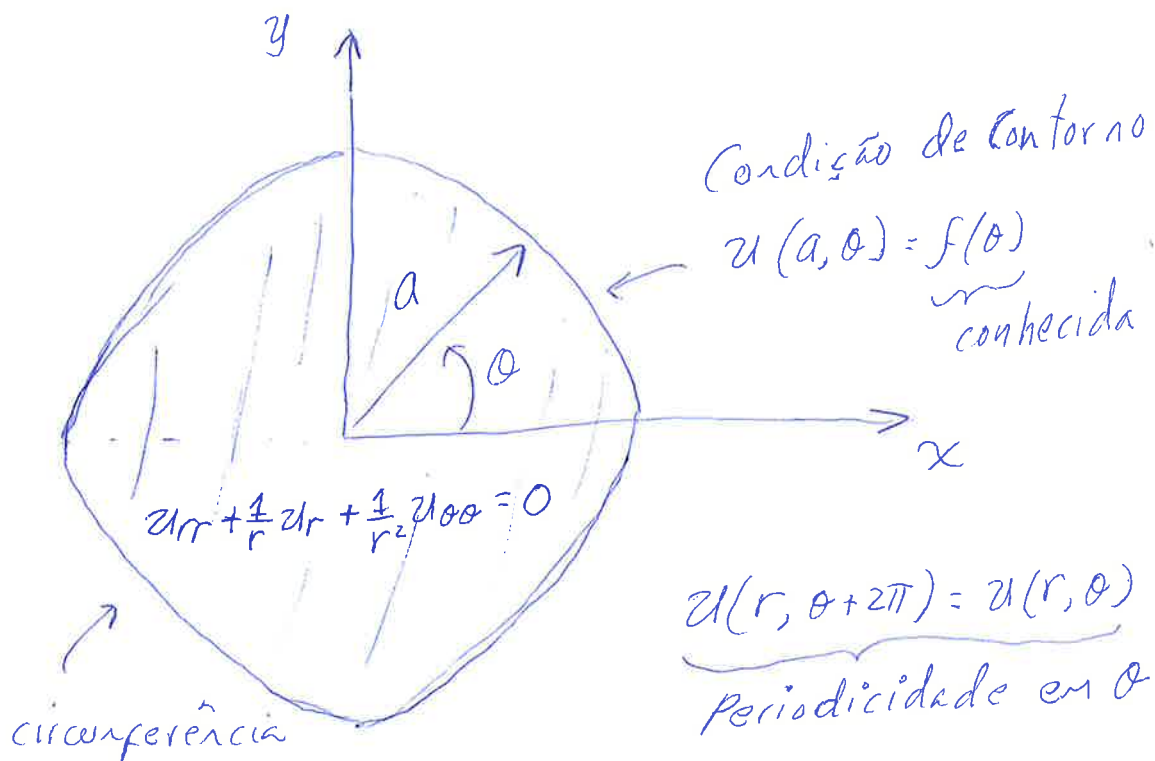 y
Condição de Contorno
u(a,θ) = f(θ)
conhecida
a
θ
x
u_rr + 1/r u_r + 1/r² u_θθ = 0
u(r, θ+2π) = u(r, θ)
Periodicidade em θ
circunferência